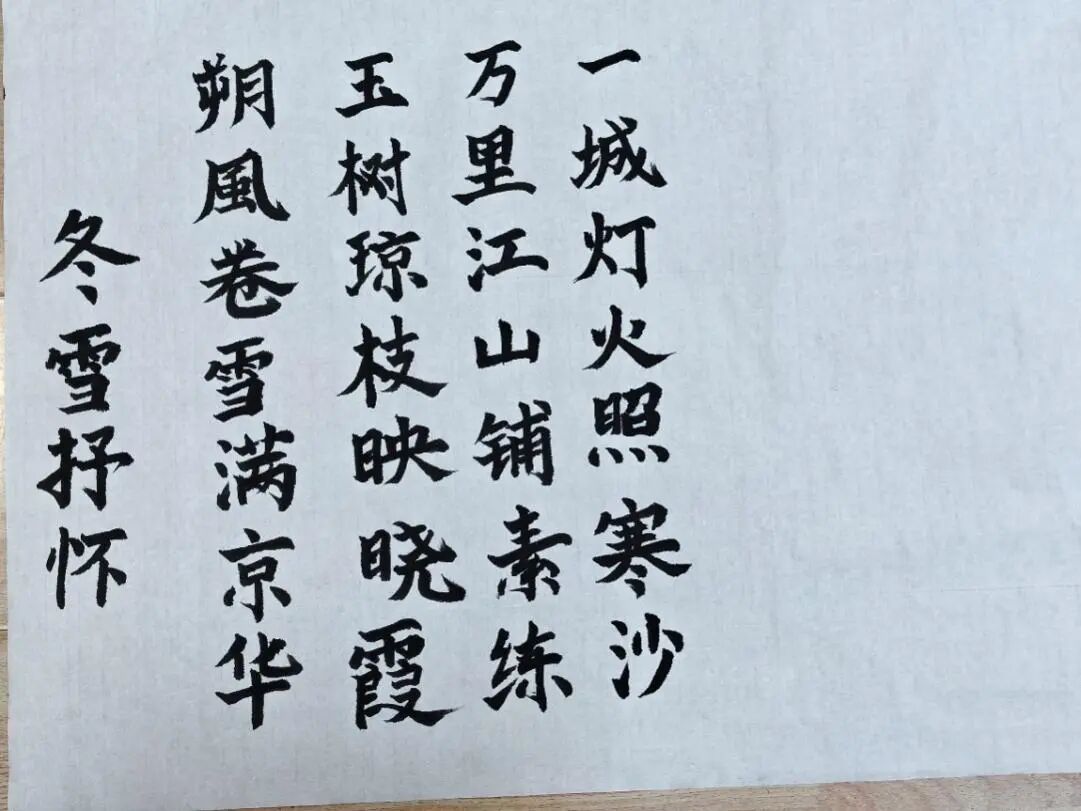 冬雪抒怀
朔風卷雪满京华
玉树琼枝映晓霞
万里江山铺素练
一城灯火照寒沙